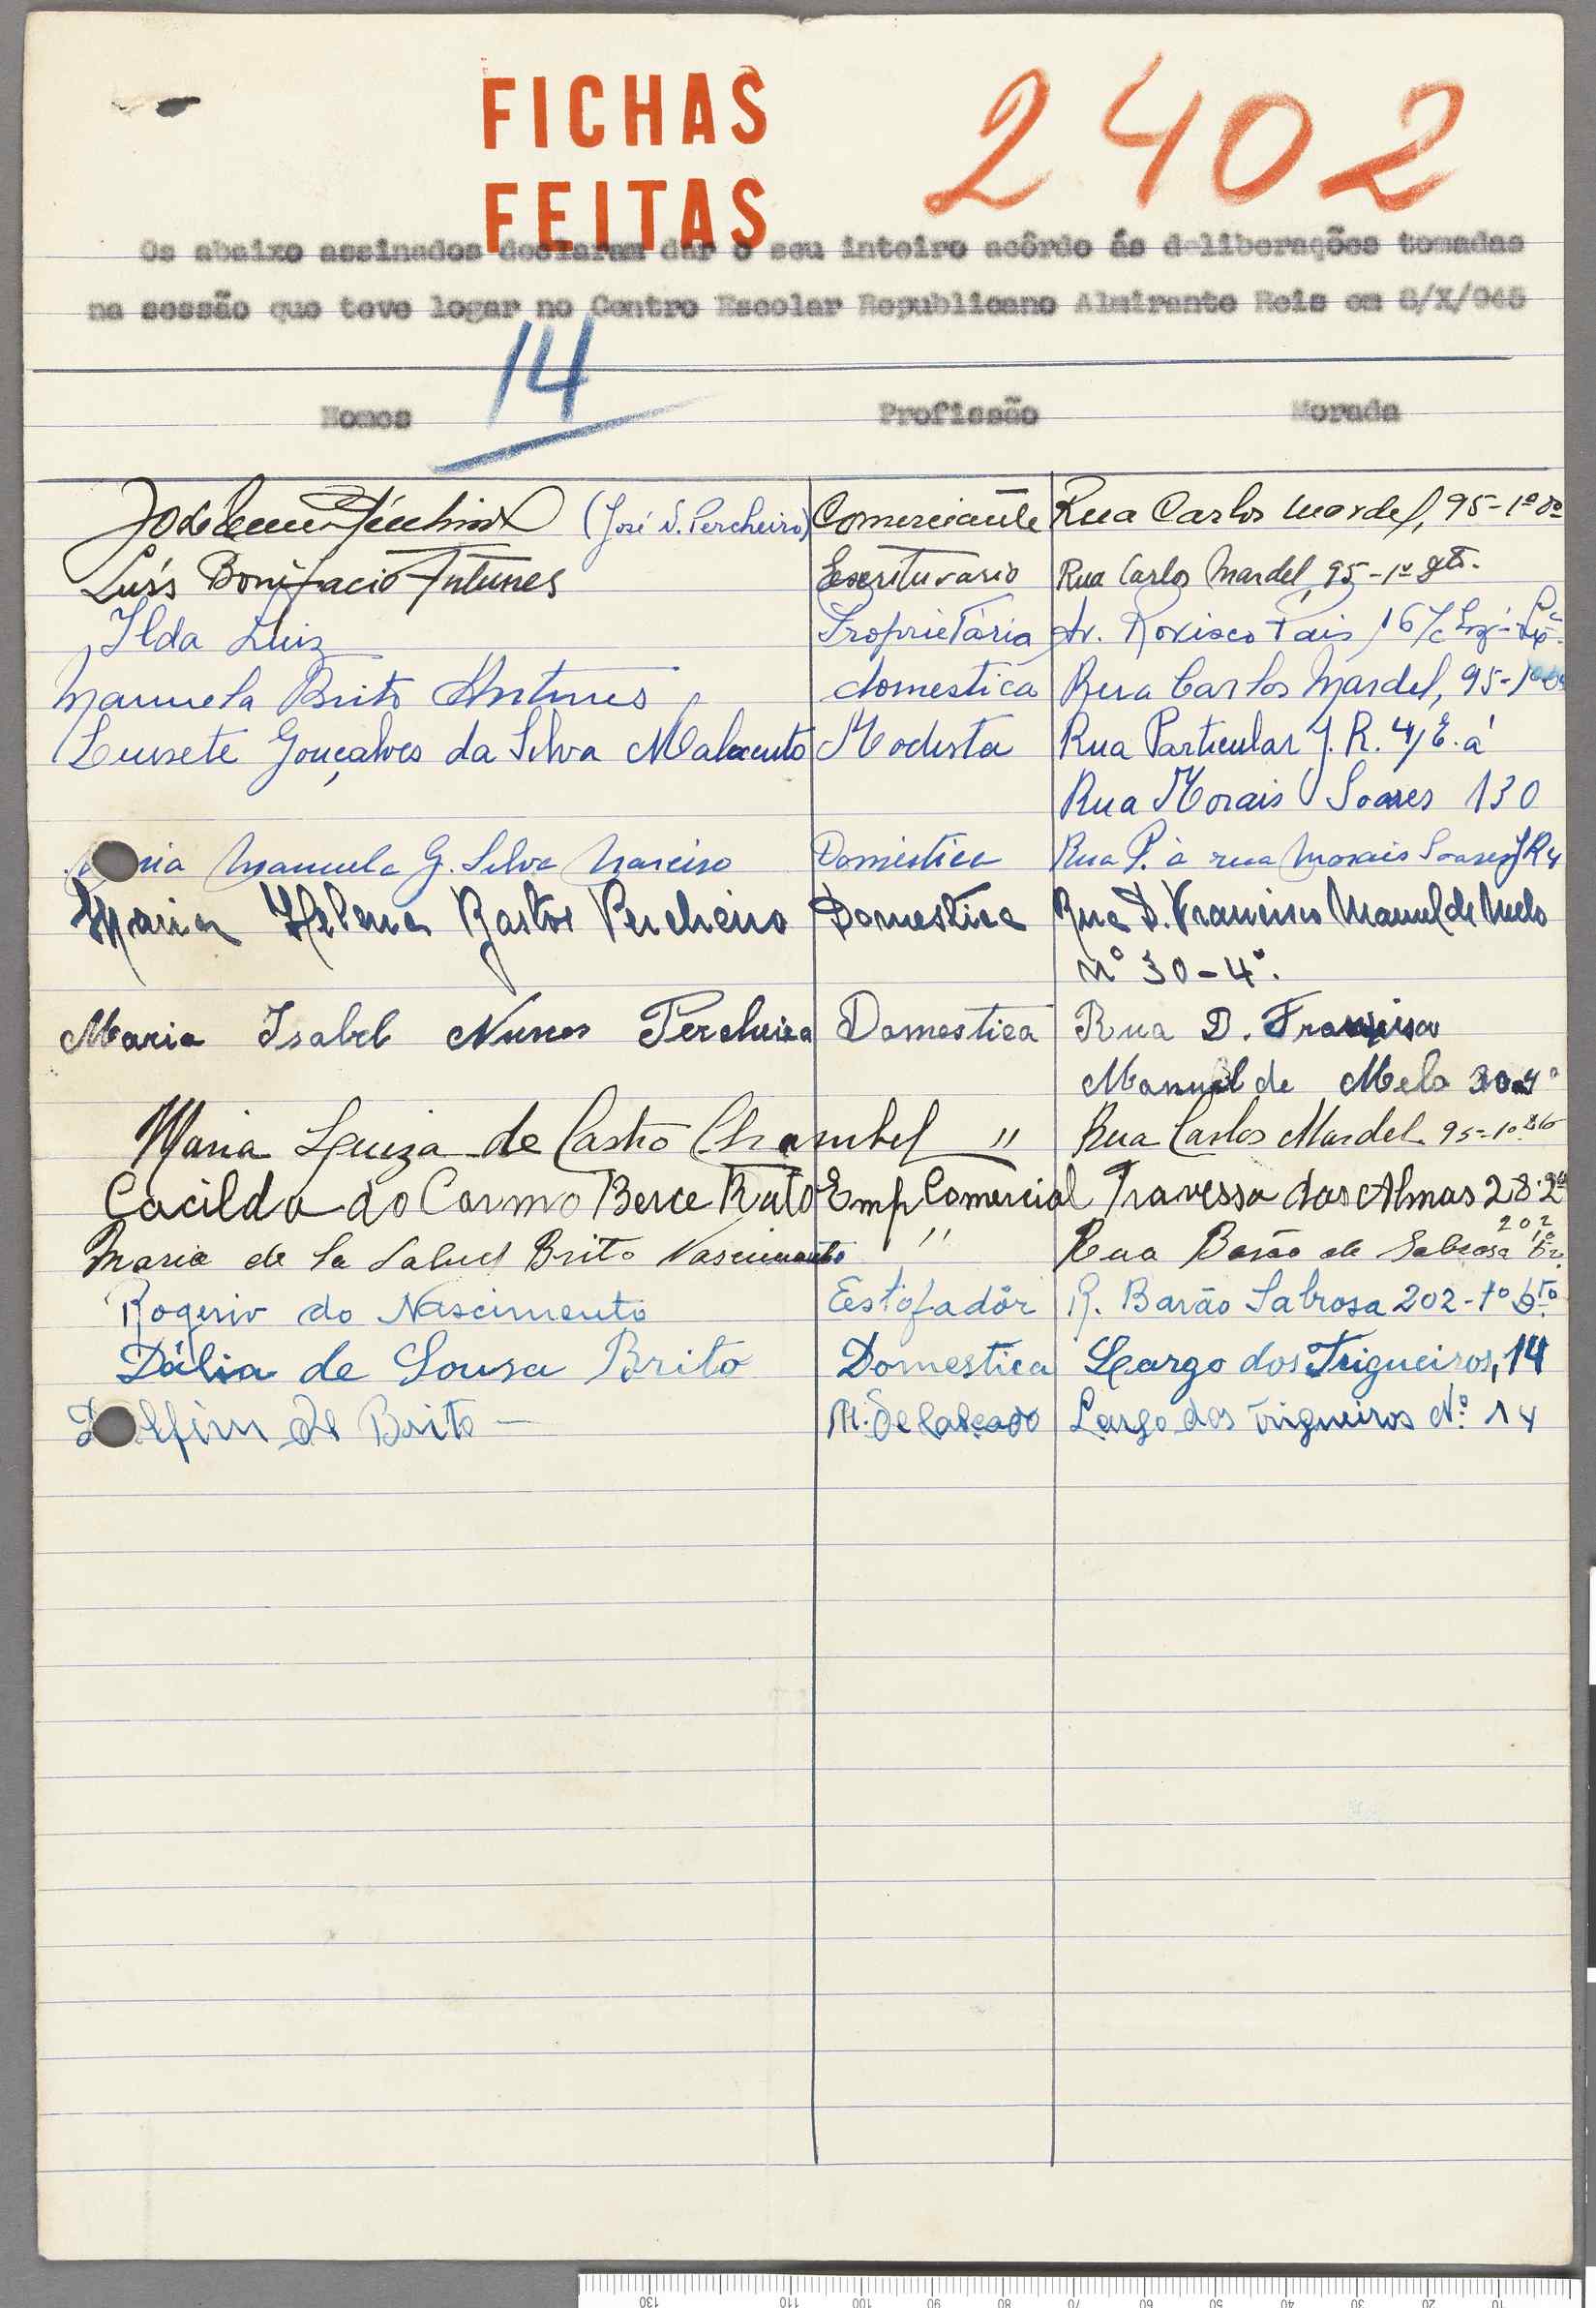 FICHAS
FEITAS
2402
Os abaixo assinados declaram dar o seu inteiro acôrdo ás deliberações tomadas
na sessão que teve logar no Centro Escolar Republicano Almirante Reis em 8/X/945
14
Nomes Profissão Morada
(José N. Percheiro) Comerciante Rua Carlos Mardel, 95-1º
Luís Bonifacio Antunes Escriturario Rua Carlos Mardel, 95-1º
Ilda Luiz Proprietária Av. Rovisco Pais, 16
Manuela Brito Antunes domestica Rua Carlos Mardel, 95-1º
Lussete Gonçalves da Silva Malacuto Modista Rua Particular J. R. 4, E. á
Rua Morais Soares 130
Manuela G. Silva Narciso Doméstica Rua P. à rua Morais Soares JR4
Maria Helena Bastos Percheiro Domestica Rua D. Francisco Manuel de Melo
nº 30-4º.
Maria Isabel Nunes Percheiro Domestica Rua D. Francisco
Manuel de Melo 30-4º
Maria Luiza de Castro Chambel " Rua Carlos Mardel 95-1º
Cacilda do Carmo Berce Rato Emp Comercial Travessa das Almas 28-2º
Maria de la Salud Brito Nascimento " Rua Barão de Sabrosa 202
Rogerio do Nascimento Estofadôr R. Barão Sabrosa 202-1º
Dália de Sousa Brito Domestica Largo dos Trigueiros, 14
de Brito — M. de Calçado Largo dos Trigueiros Nº 14
130 110 100 90 80 70 60 50 40 30 20 10